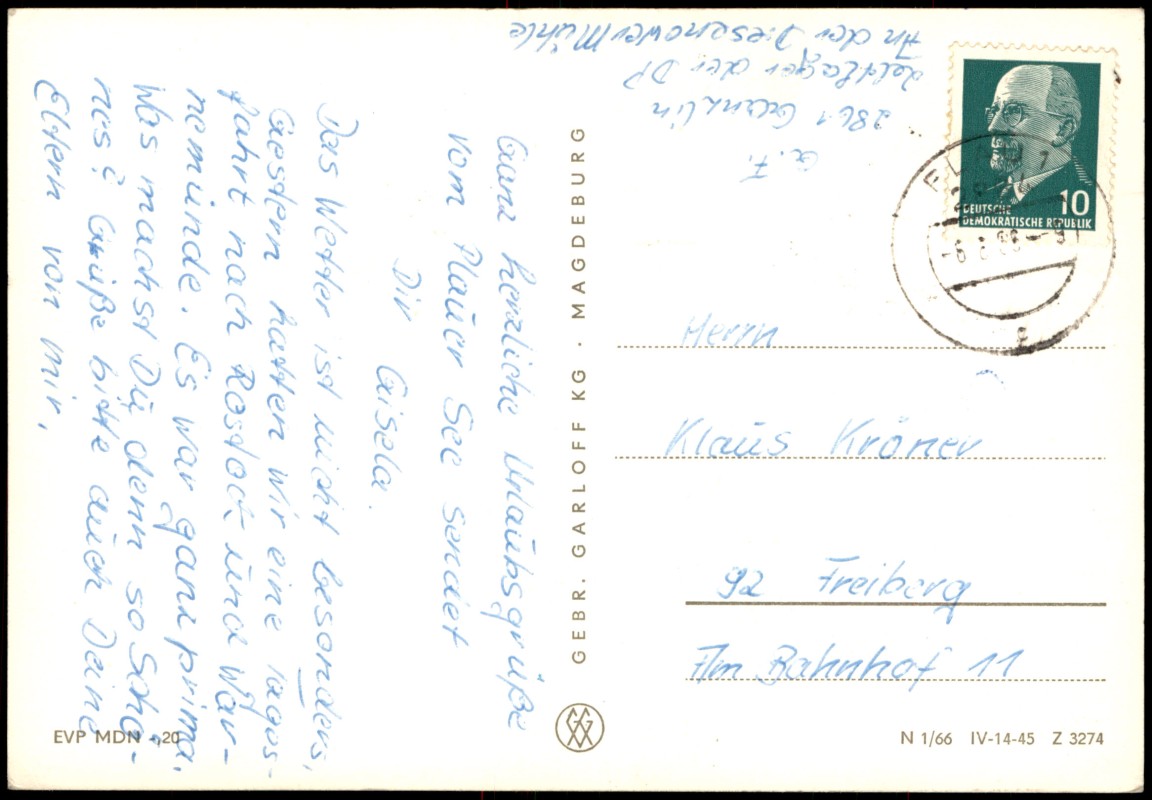 Ganz herzliche Urlaubsgrüße
vom Plauer See sendet
Dir
Gisela.
Das Wetter ist nicht besonders,
Gestern hatten wir eine Tages-
fahrt nach Rostock und War-
nemünde. Es war ganz prima.
Was machst Du denn so Schö-
nes? Grüße bitte auch Deine
Eltern von mir.
G. F.
2861 Ganzlin
Zeltlager der DP
An der Dresenower Mühle
GEBR. GARLOFF KG · MAGDEBURG
10
DEUTSCHE
DEMOKRATISCHE REPUBLIK
Herrn
Klaus Kröner
92 Freiberg
Am Bahnhof 11
EVP MDN -,20
N 1/66 IV-14-45 Z 3274